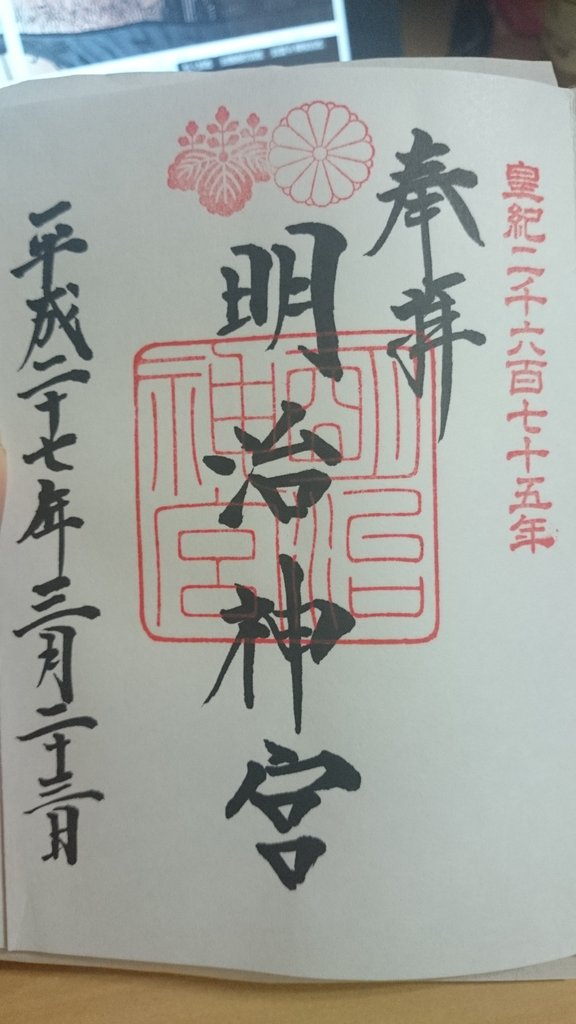 皇紀二千六百七十五年
奉拝
明治神宮
明治神宮
平成二十七年三月二十三日